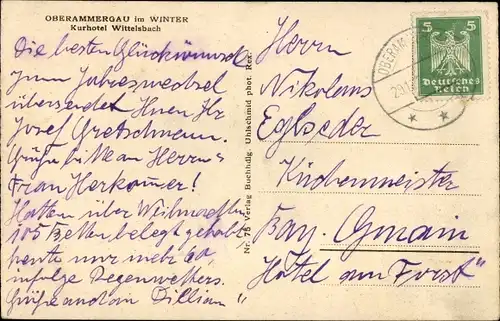 OBERAMMERGAU im WINTER
Kurhotel Wittelsbach
Die besten Glückwünsche
zum Jahreswechsel
übersendet Ihnen Ihr
Josef Gretschmann.
Grüße bitte an Herrn u
Frau Herkomer!
Hatten über Weihnachten
105 Betten belegt gehabt
heute nur mehr 60,
infolge Regenwetters.
Grüße and
Nr. 75 Verlag Buchhdlg. Uhlschmid phot. Rex
Herrn
Nikolaus
Eglseder
Küchenmeister
Bay. Gmain
Hotel am Forst"
OBERAM
29.1
5 5
Deutsches
Reich